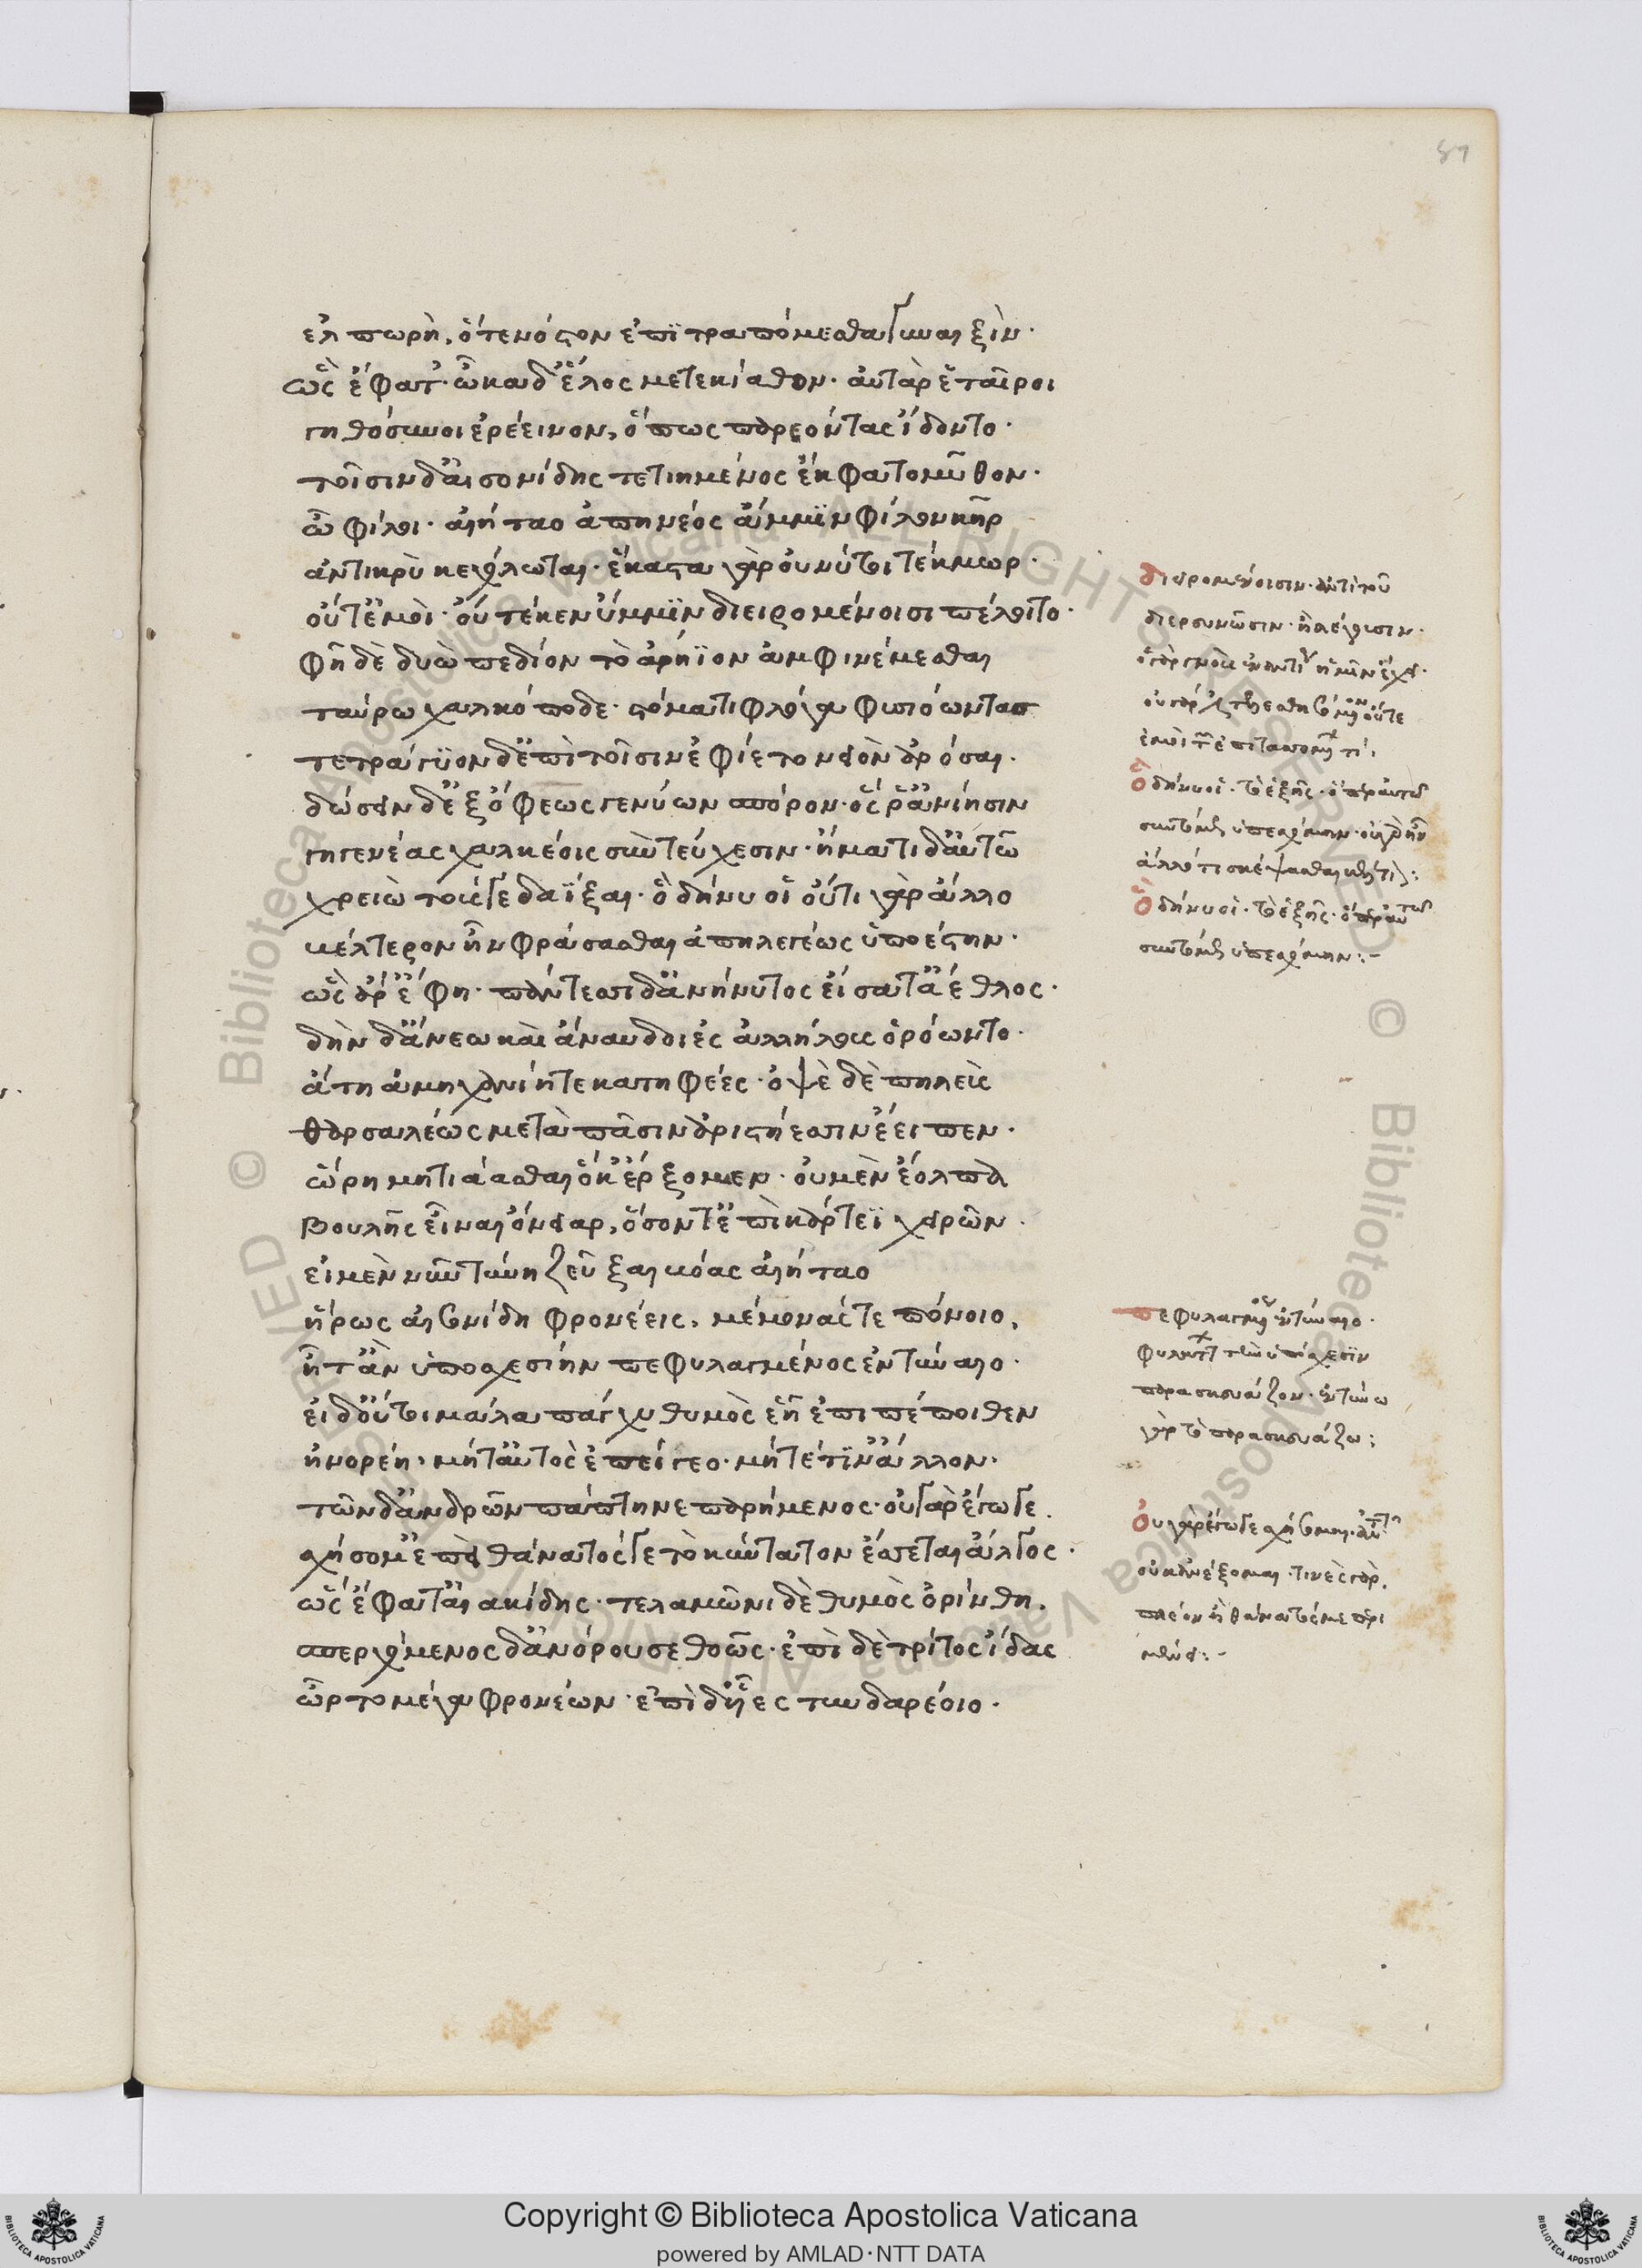 89
ἐλπωρὴ, ὅτε νόστον ἐπιτραπόμεσθα γυναιξίν·
ὣς ἔφατ'· ὦκα δ' ἕλος μετεκίαθον· αὐτὰρ ἑταῖροι
γηθόσυνοι ἐρέεινον, ὅπως παρεόντας ἴδοντο·
τοῖσιν δ' αἰσονίδης τετιημένος ἔκφατο μῦθον·
ὦ φίλοι· αἰήταο ἀπηνέος ἄμμϊν φίλον κῆρ
ἀντικρὺ κεχόλωται· ἕκαστα γὰρ οὔ νύ τοι τέκμωρ·
οὔτ' ἐμοὶ· οὔτέ κεν ὔμμϊν διειρομένοισι πέλοιτο·
φῆ δὲ δυὼ πεδίον τὸ ἀρήϊον ἀμφινέμεσθαι
ταύρω χαλκόποδε· στόματι φλόγα φυσιόωντας
τετράγϋον δ' ἐπὶ τοῖσιν ἐφίετο νειὸν ἀρόσαι·
δώσειν δ' ἐξ ὄφεως γενύων σπόρον· ὅς ῥ' ἀνίησιν
γηγενέας χαλκέοις σὺν τεύχεσιν· ἤματι δ' αὐτῶ
χρειὼ τούς γε δαΐξαι· ὃ δή νυ οἱ οὔτι γὰρ ἄλλο
βέλτερον ἦν φράσασθαι ἀπηλεγέως ὑποέστην·
ὣς ἄρ' ἔφη· πάντεσσι δ' ἀνήνυτος εἴσατ' ἄεθλος·
δὴν δ' ἄνεω καὶ ἄναυδοι ἐς ἀλλήλους ὁρόωντο·
ἄτη ἀμηχανίη τε κατηφέες· ὀψὲ δὲ πηλεὺς
θαρσαλέως μετὰ πᾶσιν ἀριστήεσσιν ἔειπεν·
ὥρη μητιάασθαι ὅ κ' ἔρξομεν· οὐ μὲν ἔολπα
βουλῆς εἶναι ὄνειαρ, ὅσον τ' ἐπὶ κάρτεϊ χειρῶν·
εἰ μὲν νῦν τύνη ζεῦξαι βόας αἰήταο
ἥρως αἰσονίδη φρονέεις, μέμονάς τε πόνοιο,
ἦ τ' ἂν ὑποσχεσίην πεφυλαγμένος ἐντύναιο·
εἰ δ' οὔ τοι μάλα πάγχυ θυμὸς ἑῆ ἐπιπέποιθεν
ἠνορέη, μήτ' αὐτὸς ἐπείγεο· μήτέ τϊν' ἄλλον·
τῶνδ' ἀνδρῶν πάπτηνε παρήμενος· οὐ γὰρ ἔγωγε
σχήσομ' ἐπεὶ θάνατός γε τὸ κύντατον ἔσσεται ἄλγος·
ὣς ἔφατ' αἰακίδης· τελαμῶνι δὲ θυμὸς ὀρίνθη·
σπερχόμενος δ' ἀνόρουσε θοῶς· ἐπὶ δὲ τρίτος ἴδας
ὦρτο μέγα φρονέων· ἐπὶ δ' ἧες τυνδαρέοιο·
διειρομένοισιν· ἀντὶ τοῦ
διερευνῶσιν· ἢ λέγουσιν·
πεφυλαγμένος ἐντύναιο·
παρασκευάζον· ἐντύνω
γὰρ τὸ παρασκευάζω:
οὐ γὰρ ἔγωγε σχήσομαι·
οὐκ ἀνέξομαι·
Copyright © Biblioteca Apostolica Vaticana
powered by AMLAD·NTT DATA